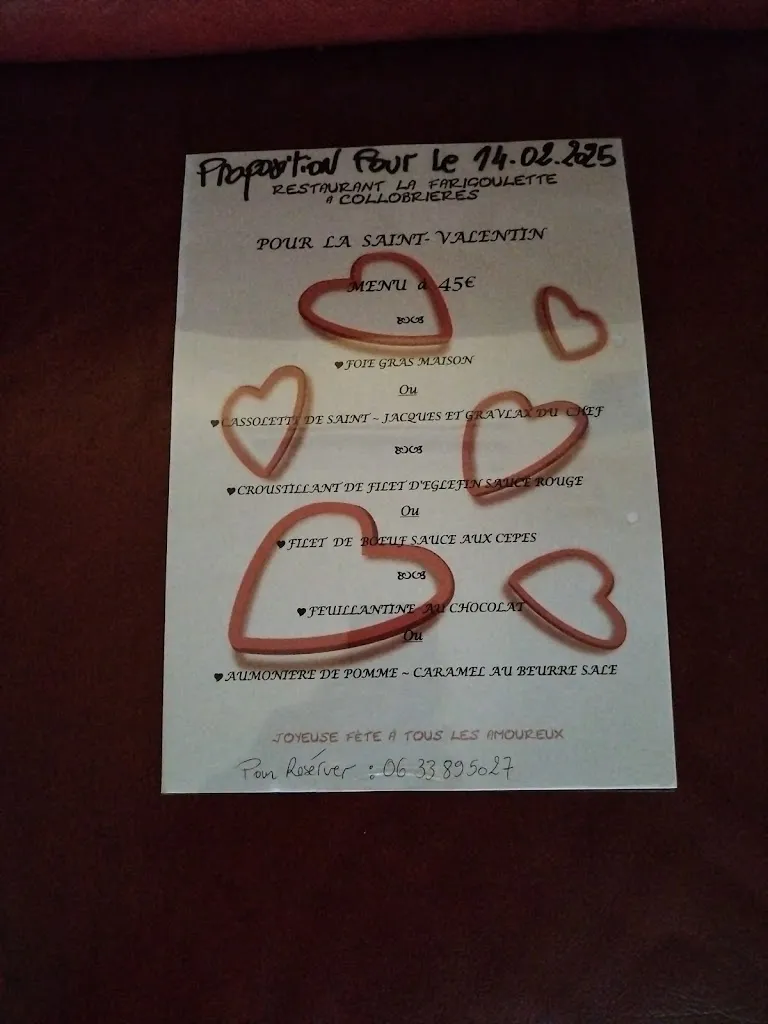 Proposition Pour Le 14.02.2025
RESTAURANT LA FARIGOULETTE
A COLLOBRIERES
POUR LA SAINT-VALENTIN
MENU à 45€
♥FOIE GRAS MAISON
Ou
♥CASSOLETTE DE SAINT~JACQUES ET GRAVLAX DU CHEF
♥CROUSTILLANT DE FILET D'EGLEFIN SAUCE ROUGE
Ou
♥FILET DE BOEUF SAUCE AUX CEPES
♥FEUILLANTINE AU CHOCOLAT
Ou
♥AUMONIERE DE POMME ~ CARAMEL AU BEURRE SALE
JOYEUSE FÊTE A TOUS LES AMOUREUX
Pour Resérver : 06 33 89 50 27